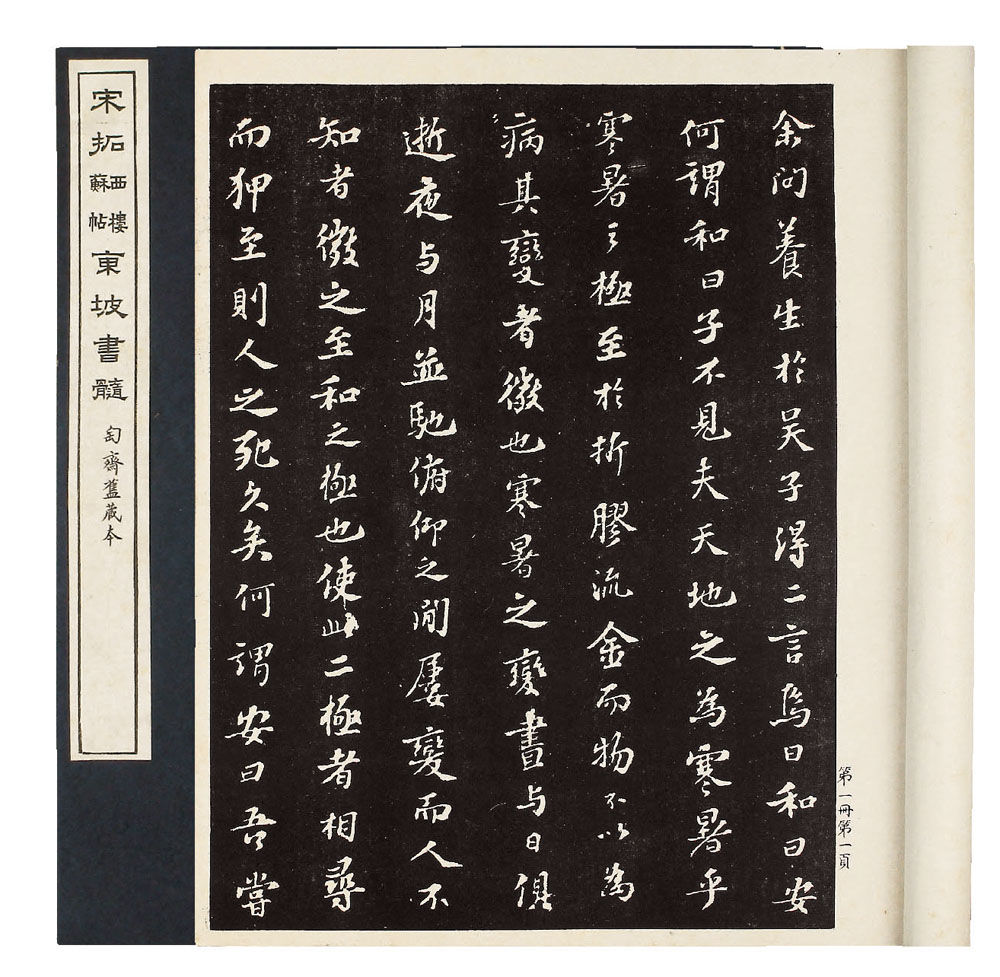 宋拓西樓蘇帖東坡書髓
匋齋舊藏本
余問養生於吴子得二言焉曰和曰安
何謂和曰子不見夫天地之為寒暑乎
寒暑之極至於折膠流金而物不以為
病其變者微也寒暑之變晝与日俱
逝夜与月並馳俯仰之間屢變而人不
知者微之至和之極也使此二極者相尋
而狎至則人之死久矣何謂安曰吾嘗
第一冊第一頁